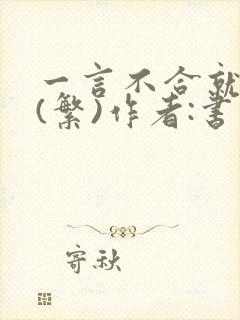 一言不合就
(繁)作者:書
寄秋